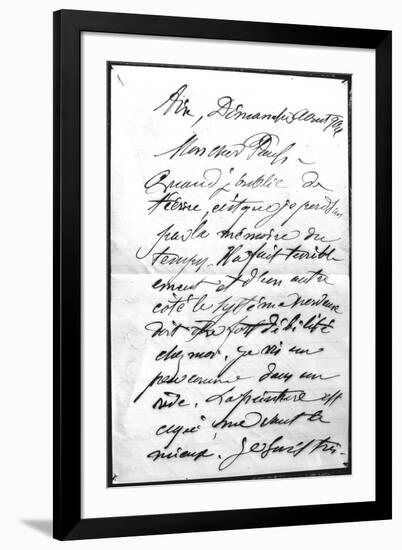 Aix, Dimanche Aout 906
Mon cher Paul,
Quand j'oublie de
t'écrire, c'est que je perds un
peu la mémoire du
temps. Il a fait terrible
ement et d'un autre
coté le système nerveux
doit etre fort débilité
chez moi, je vis un
peu comme dans un
vide. La peinture est
ce qui me vaut le
mieux. Je suis très-